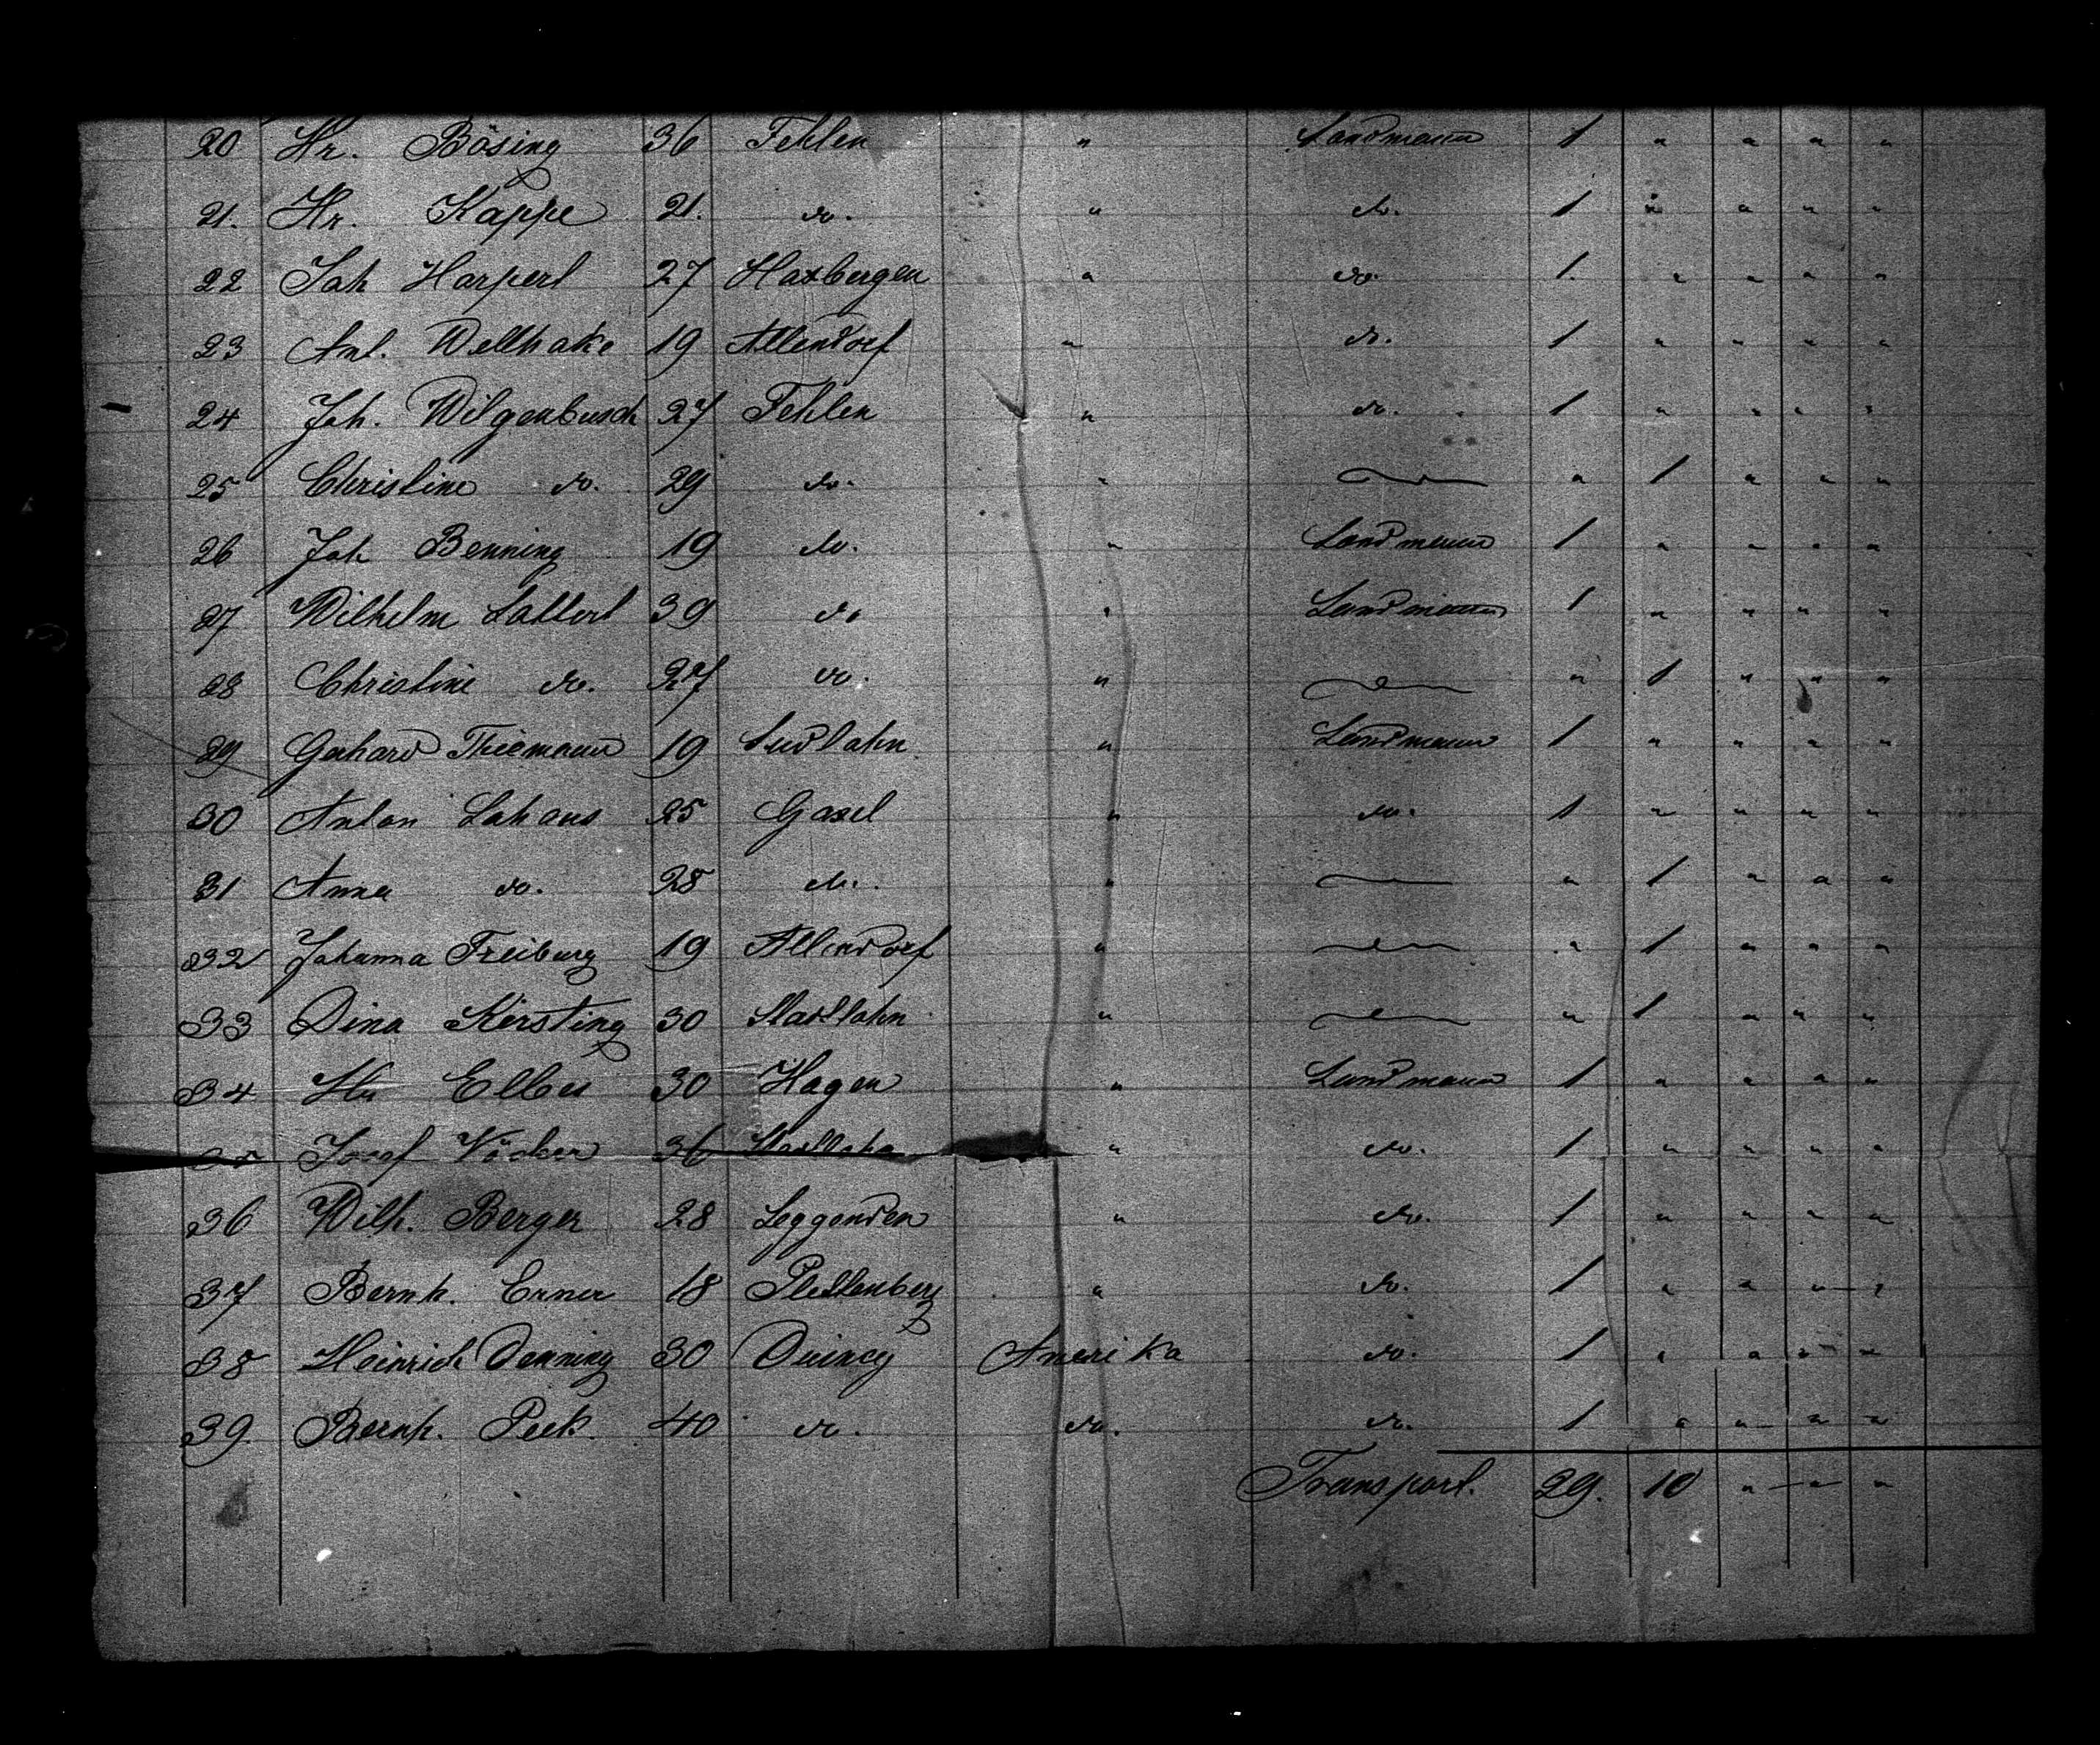 20 Hr. Bösing 36 Fehlen " Landmann 1 " " " "
21. Hr. Kappe 21. do. " do. 1 " " " "
22 Joh Harperl 27 Haxbergen " do. 1. " " " "
23 Ant. Wellhake 19 Allendorf " do. 1 " " " "
24 Joh. Wilgenbusch 27 Fehlen " do. 1 " " " "
25 Christine do. 29 do. " — " 1 " " "
26 Joh Benning 19 do. " Landmann 1 " " " "
27 Wilhelm Lattert 39 do " Landmann 1 " " " "
28 Christine do. 27 do. " — " 1 " " "
29 Gerhard Thiemann 19 Sudlahn " Landmann 1 " " " "
30 Anton Lahaus 25 Gaxel " do. 1 " " " "
31 Anna do. 28 do. " — " 1 " " "
32 Johanna Freiburg 19 Allendorf " — " 1 " " "
33 Dina Kersting 30 Stadtlohn " — " 1 " " "
34 Hr Elbers 30 Hagen " Landmann 1 " " " "
35 Josef 36 " do. 1 " " " "
36 Wilh. Berger 28 Leggenden " do. 1 " " " "
37 Bernh. Erner 18 Plettenberg " do. 1 " " " "
38 Heinrich Denning 30 Quincy Amerika do. 1 " " " "
39. Bernh. Peek. 40 do. do. do. 1 " " " "
Transport. 29. 10 " " "